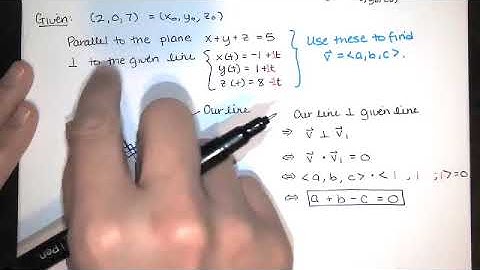 Given: (2,0,7) = (x₀, y₀, z₀)
Parallel to the plane x+y+z=5
⊥ to the given line { x(t) = -1 + 1t
y(t) = 1 + 1t
z(t) = 8 - 1t
Use these to find
v⃗ = <a,b,c>.
Our line
Our line ⊥ given line
⇒ v⃗ ⊥ v⃗₁
⇔ v⃗ • v⃗₁ = 0
⇔ <a, b, c> • <1, 1, -1> = 0
⇔ a + b - c = 0